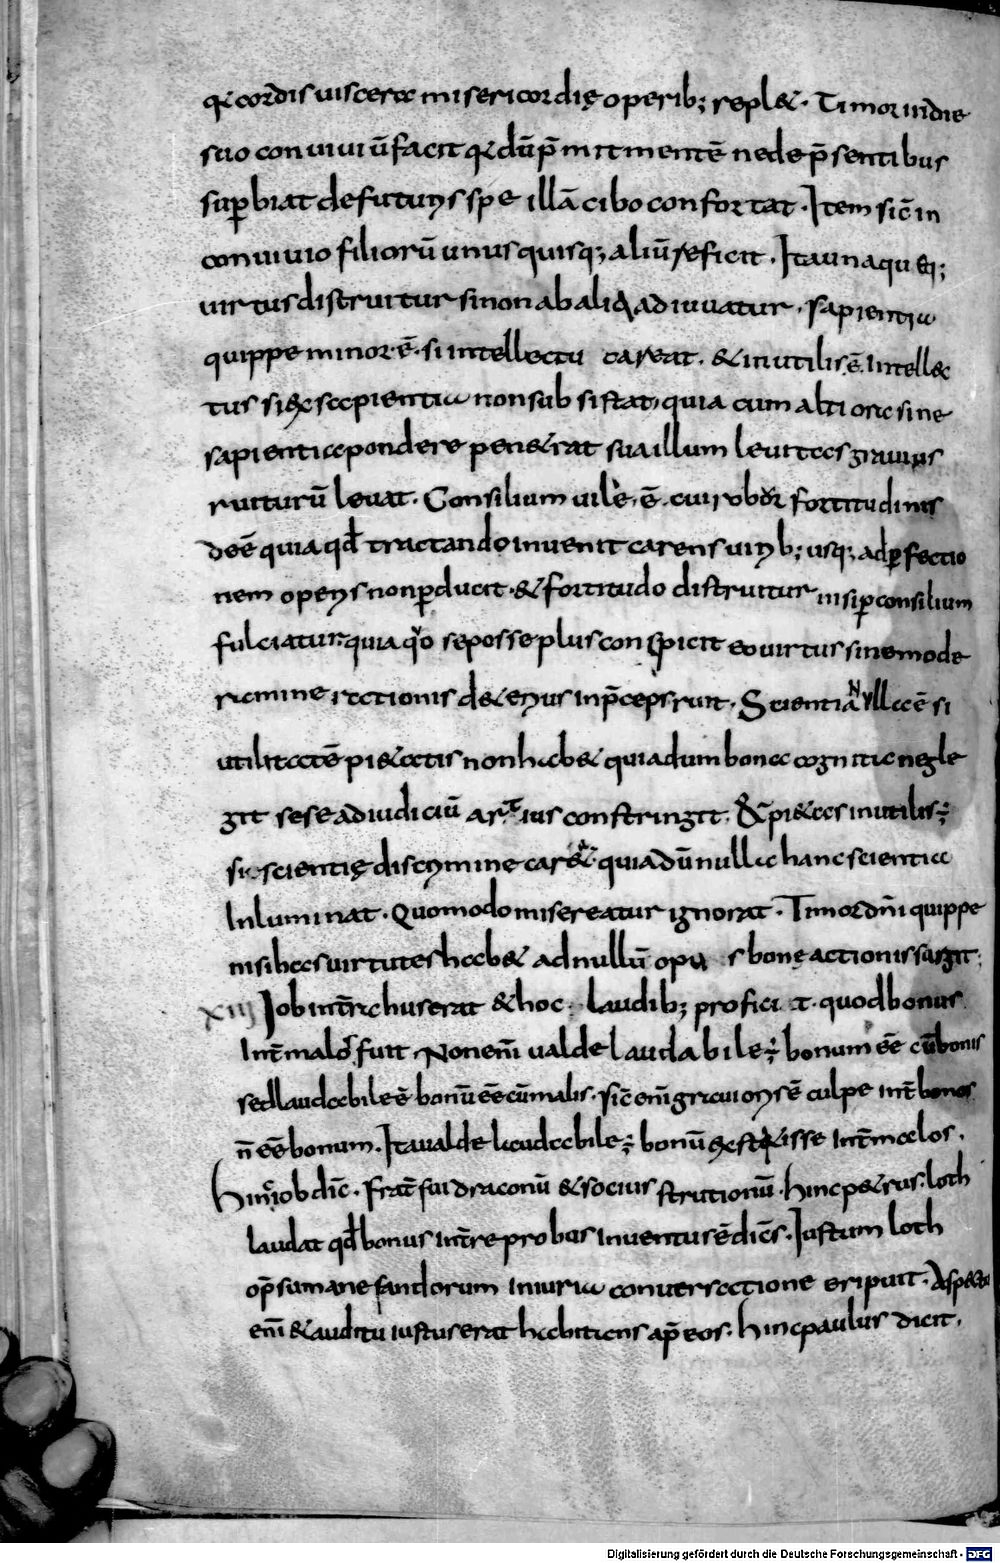 qꝛ cordis uiscera misericordię operib; repl&. Timor in die
suo conuiuiū facit qꝛ dū p̄mit mentē ne de p̄sentibus
sup̱biat de futuris spe illā cibo confortat. Item sic̄ in
conuiuio filiorū unusquisq; aliū reficit. Ita unaquęq;
uirtus distruitur si non ab aliq̇ adiuuatur. Sapientia
quippe minor .ē. si intellectu careat. & inutilis .ē. Intellec
tus si ex sapientia non subsistat quia cum altiora sine
sapientiae pondere pen&rat sua illum leuitas grauius
ruiturū leuat. Consilium uile .ē. cui robor fortitudinis
deē quia qd̄ tractando inuenit carens uirib; usq; ad ꝑfectio
nem operis non ꝑducit. & fortitudo distruitur nisi ꝑ consilium
fulciatur quia qͦ se posse plus conspicit eo uirtus sine mode
ramine rationis d&erius in p̄ceps ruit. Scientia Nulla ē si
utilitatē pi&atis non hab& quia dum bona cognita negle
git sese ad iudiciū artius constringit. & pi&as inutilis ÷
si scientię discrimine car& quia dū nulla hanc scientia
Inluminat. Quomodo misereatur ignorat. Timor dn̄i quippe
nisi has uirtutes hab& ad nullū opus bonę actionis surgit;
XIII Iob int̄ ... erat & hoc laudib; profici&. quod bonus
Int̄ malos fuit Non eni̅ ualde laudabile ÷ bonum eē cū bonis
sed laudabile ē bonū eē cū malis. Sic̄ eni̅ grauioris ē culpe int̄ bonos
n̄ eē bonum. Ita ualde laudabile ÷ bonū exstitisse int̄ malos.
Hinc iob dic̄. Frat̄ fui draconū & socius strutionū. Hinc p&rus loth
laudat qd̄ bonus int̄ reprobos inuentus ē dicēs. Iustum loth
op̄sum a nefandorum iniuria conuersatione eripuit. Aspectu
eni̅ & auditu iustus erat habitans ap̄ eos. Hinc paulus dicit.
Digitalisierung gefördert durch die Deutsche Forschungsgemeinschaft - DFG